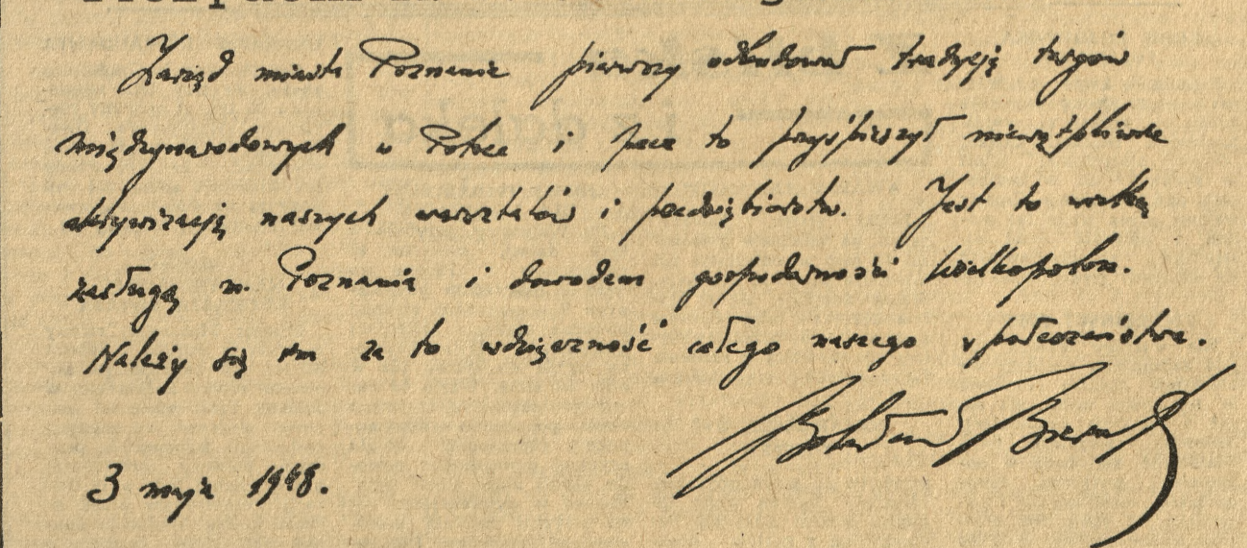 Zarząd miasta Poznania pierwszy odbudował tradycję targów
międzynarodowych w Polsce i przez to przyśpieszył niewątpliwie
aktywizację naszych warsztatów i przedsiębiorstw. Jest to wielką
zasługą m. Poznania i dowodem gospodarności Wielkopolan.
Należy się im za to wdzięczność całego naszego społeczeństwa.
3 maja 1948.